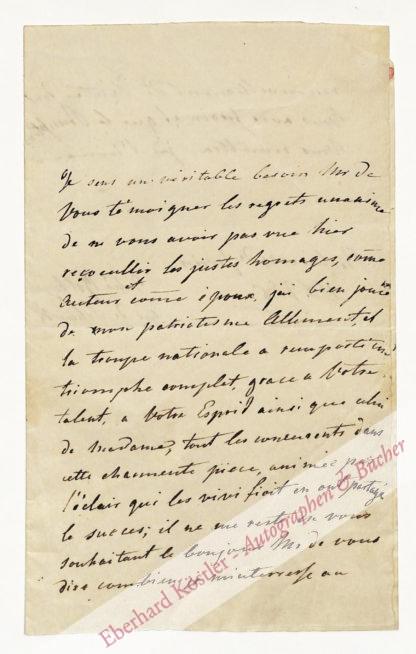 Je sens un véritable besoin Mr de
vous témoigner les regrets unanime
de ne vous avoir pas vue hier
reçoeullir les justes homages, come
Auteur et come époux, j'ai bien jouie
de mon patriotisme Allement, et
la troupe nationale a remporté un
triomphe complet, grace a Votre
talent, a Votre Esprid ainsi que celui
de Madame, tout les concurents dans
cette charmente piece, animée par
l'éclair qui les vivifioit en ont partagé
le succes; il ne me reste que vous
souhaitant le bonjour Mr de vous
dire combien je m'interresse au
Eberhard Köstler - Autographen & Bücher